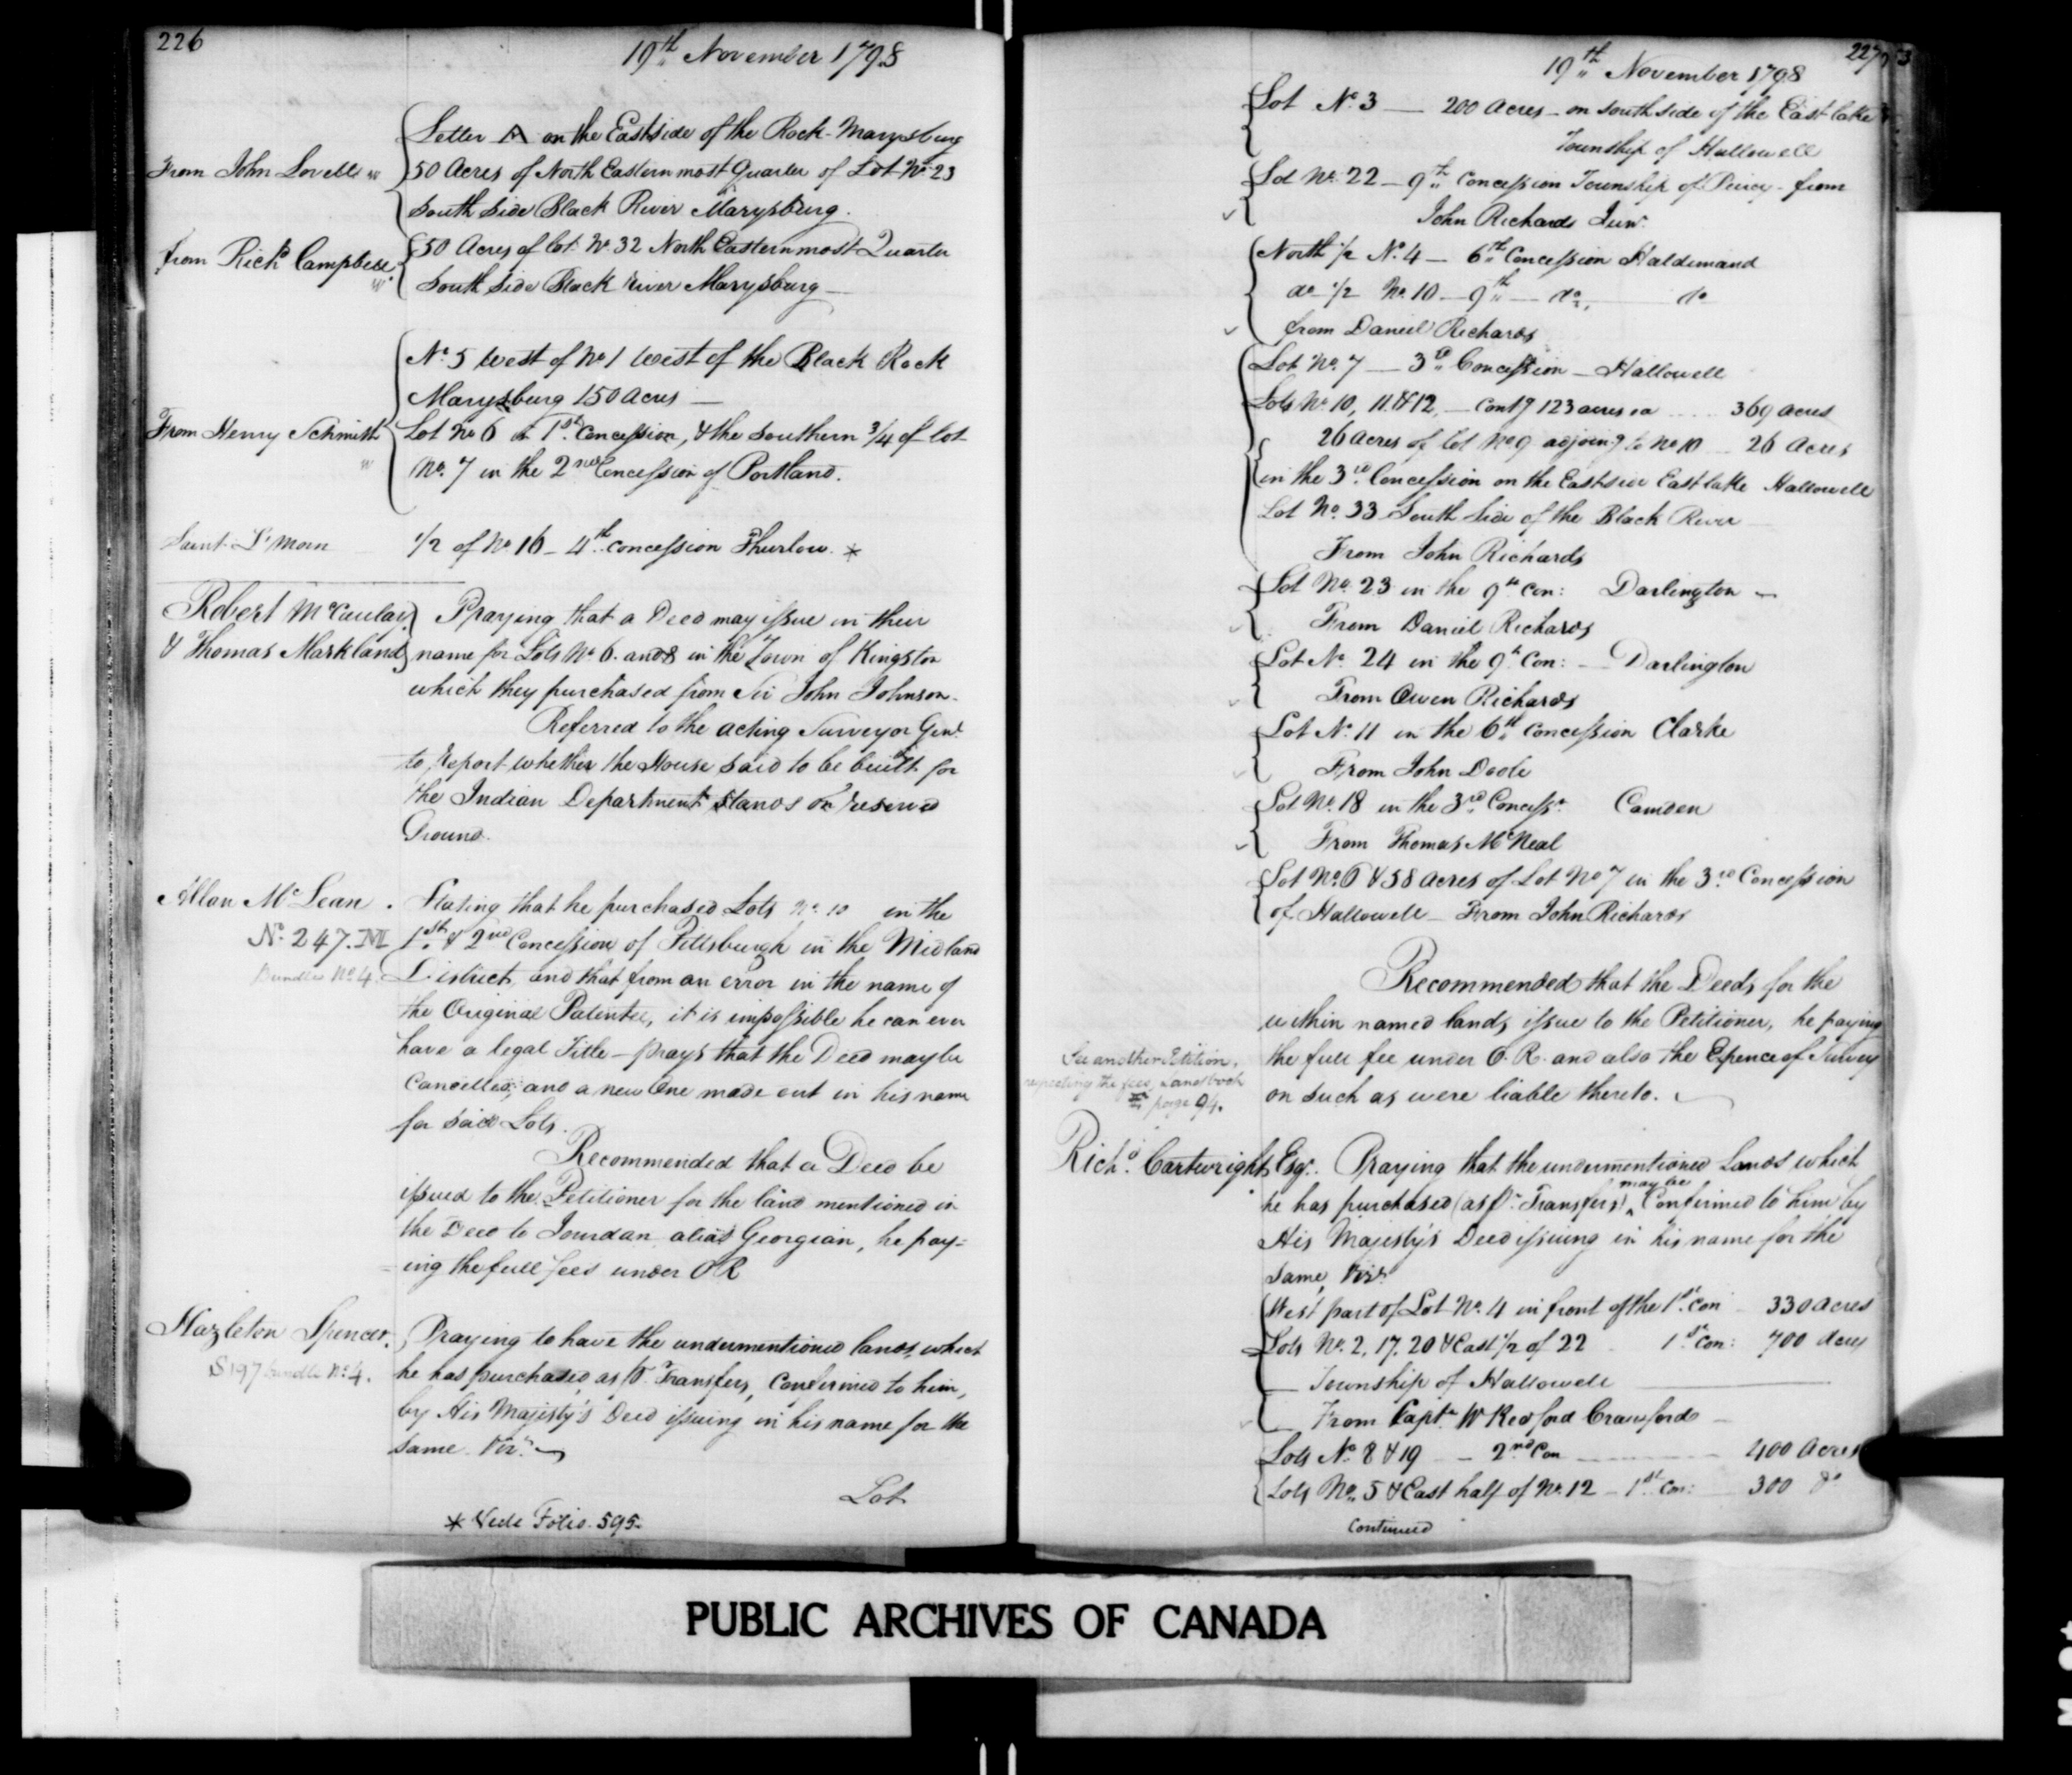 226
19th November 1798
Letter A on the East side of the Rock - Marysburg
From John Lovell 50 Acres of North Eastern most Quarter of Lot No 23
South Side Black River Marysburg.
from Richd Campbell 50 Acres of lot No 32 North Eastern most Quarter
South Side Black River Marysburg
No 5 West of No 1 West of the Black Rock
Marysburg 150 Acres
From Henry Schmidt Lot No 6 in 1st Concession, & the Southern 3/4 of lot
No. 7 in the 2nd Concession of Portland.
1/2 of No 16 - 4th concession Thurlow. *
Robert McCaulay Praying that a Deed may issue in their
& Thomas Markland name for Lots No 6. and 8 in the Town of Kingston
which they purchased from Sir John Johnson.
Referred to the acting Surveyor Genl
to report whether the House said to be built for
the Indian Department stands on reserved
Ground.
Allan McLean . Stating that he purchased Lots No. 10 in the
No. 247. M 1st & 2nd Concession of Pittsburgh in the Midland
Bundle No. 4 District, and that from an error in the name of
the Original Patentee, it is impossible he can ever
have a legal Title - prays that the Deed may be
Cancelled, and a new One made out in his name
for said Lots.
Recommended that a Deed be
issued to the Petitioner for the land mentioned in
the Deed to Jourdan alias Georgian, he pay-
ing the full fees under OR
Hazleton Spencer. Praying to have the undermentioned lands, which
S 197 bundle No. 4. he has purchased, as pr Transfers, Confirmed to him,
by His Majesty's Deed issuing in his name for the
same Vizt
Lot
* Vide Folio. 595.
227
19th November 1798
Lot No. 3 — 200 Acres - on south side of the East lake
Township of Hallowell
Lot No. 22 - 9th Concession Township of Percy - from
John Richards Junr.
North 1/2 No. 4 - 6th Concession Haldimand
do 1/2 No. 10 - 9th - do, do
from Daniel Richards
Lot No. 7 — 3d Concession - Hallowell
Lots No. 10, 11. & 12, - Contg 123 acres ea .... 369 acres
26 Acres of lot No 9 adjoing to No 10 ... 26 Acres
in the 3rd Concession on the East side East lake Hallowell
Lot No. 33 South Side of the Black River
From John Richards
Lot No. 23 in the 9th Con: Darlington
From Daniel Richards
Lot No. 24 in the 9th Con: - Darlington
From Owen Richards
Lot No. 11 in the 6th Concession Clarke
From John
Lot No. 18 in the 3rd Concessn Camden
From Thomas McNeal
Lot No. 6 & 58 acres of Lot No 7 in the 3rd Concession
of Hallowell - From John Richards
Recommended that the Deeds for the
within named lands issue to the Petitioner, he paying
See another Petition, the full fee under O. R. and also the Expence of Survey
respecting the fees, Landbook
page 94. on such as were liable thereto.
Richd. Cartwright Esqr. Praying that the undermentioned Lands which
he has purchased (as pr. Transfers) may be Confirmed to him by
His Majesty's Deed issuing in his name for the
same, Vizt
West part of Lot No. 4 in front of the 1st Con 330 acres
Lots No. 2, 17. 20 & East 1/2 of 22 1st Con: 700 Acres
Township of Hallowell
From Captn W Redford Crawford
Lots No. 8 & 19 - 2nd Con 400 Acres
Lots No. 5 & East half of No. 12 - 1st Con: 300 do
Continued
PUBLIC ARCHIVES OF CANADA